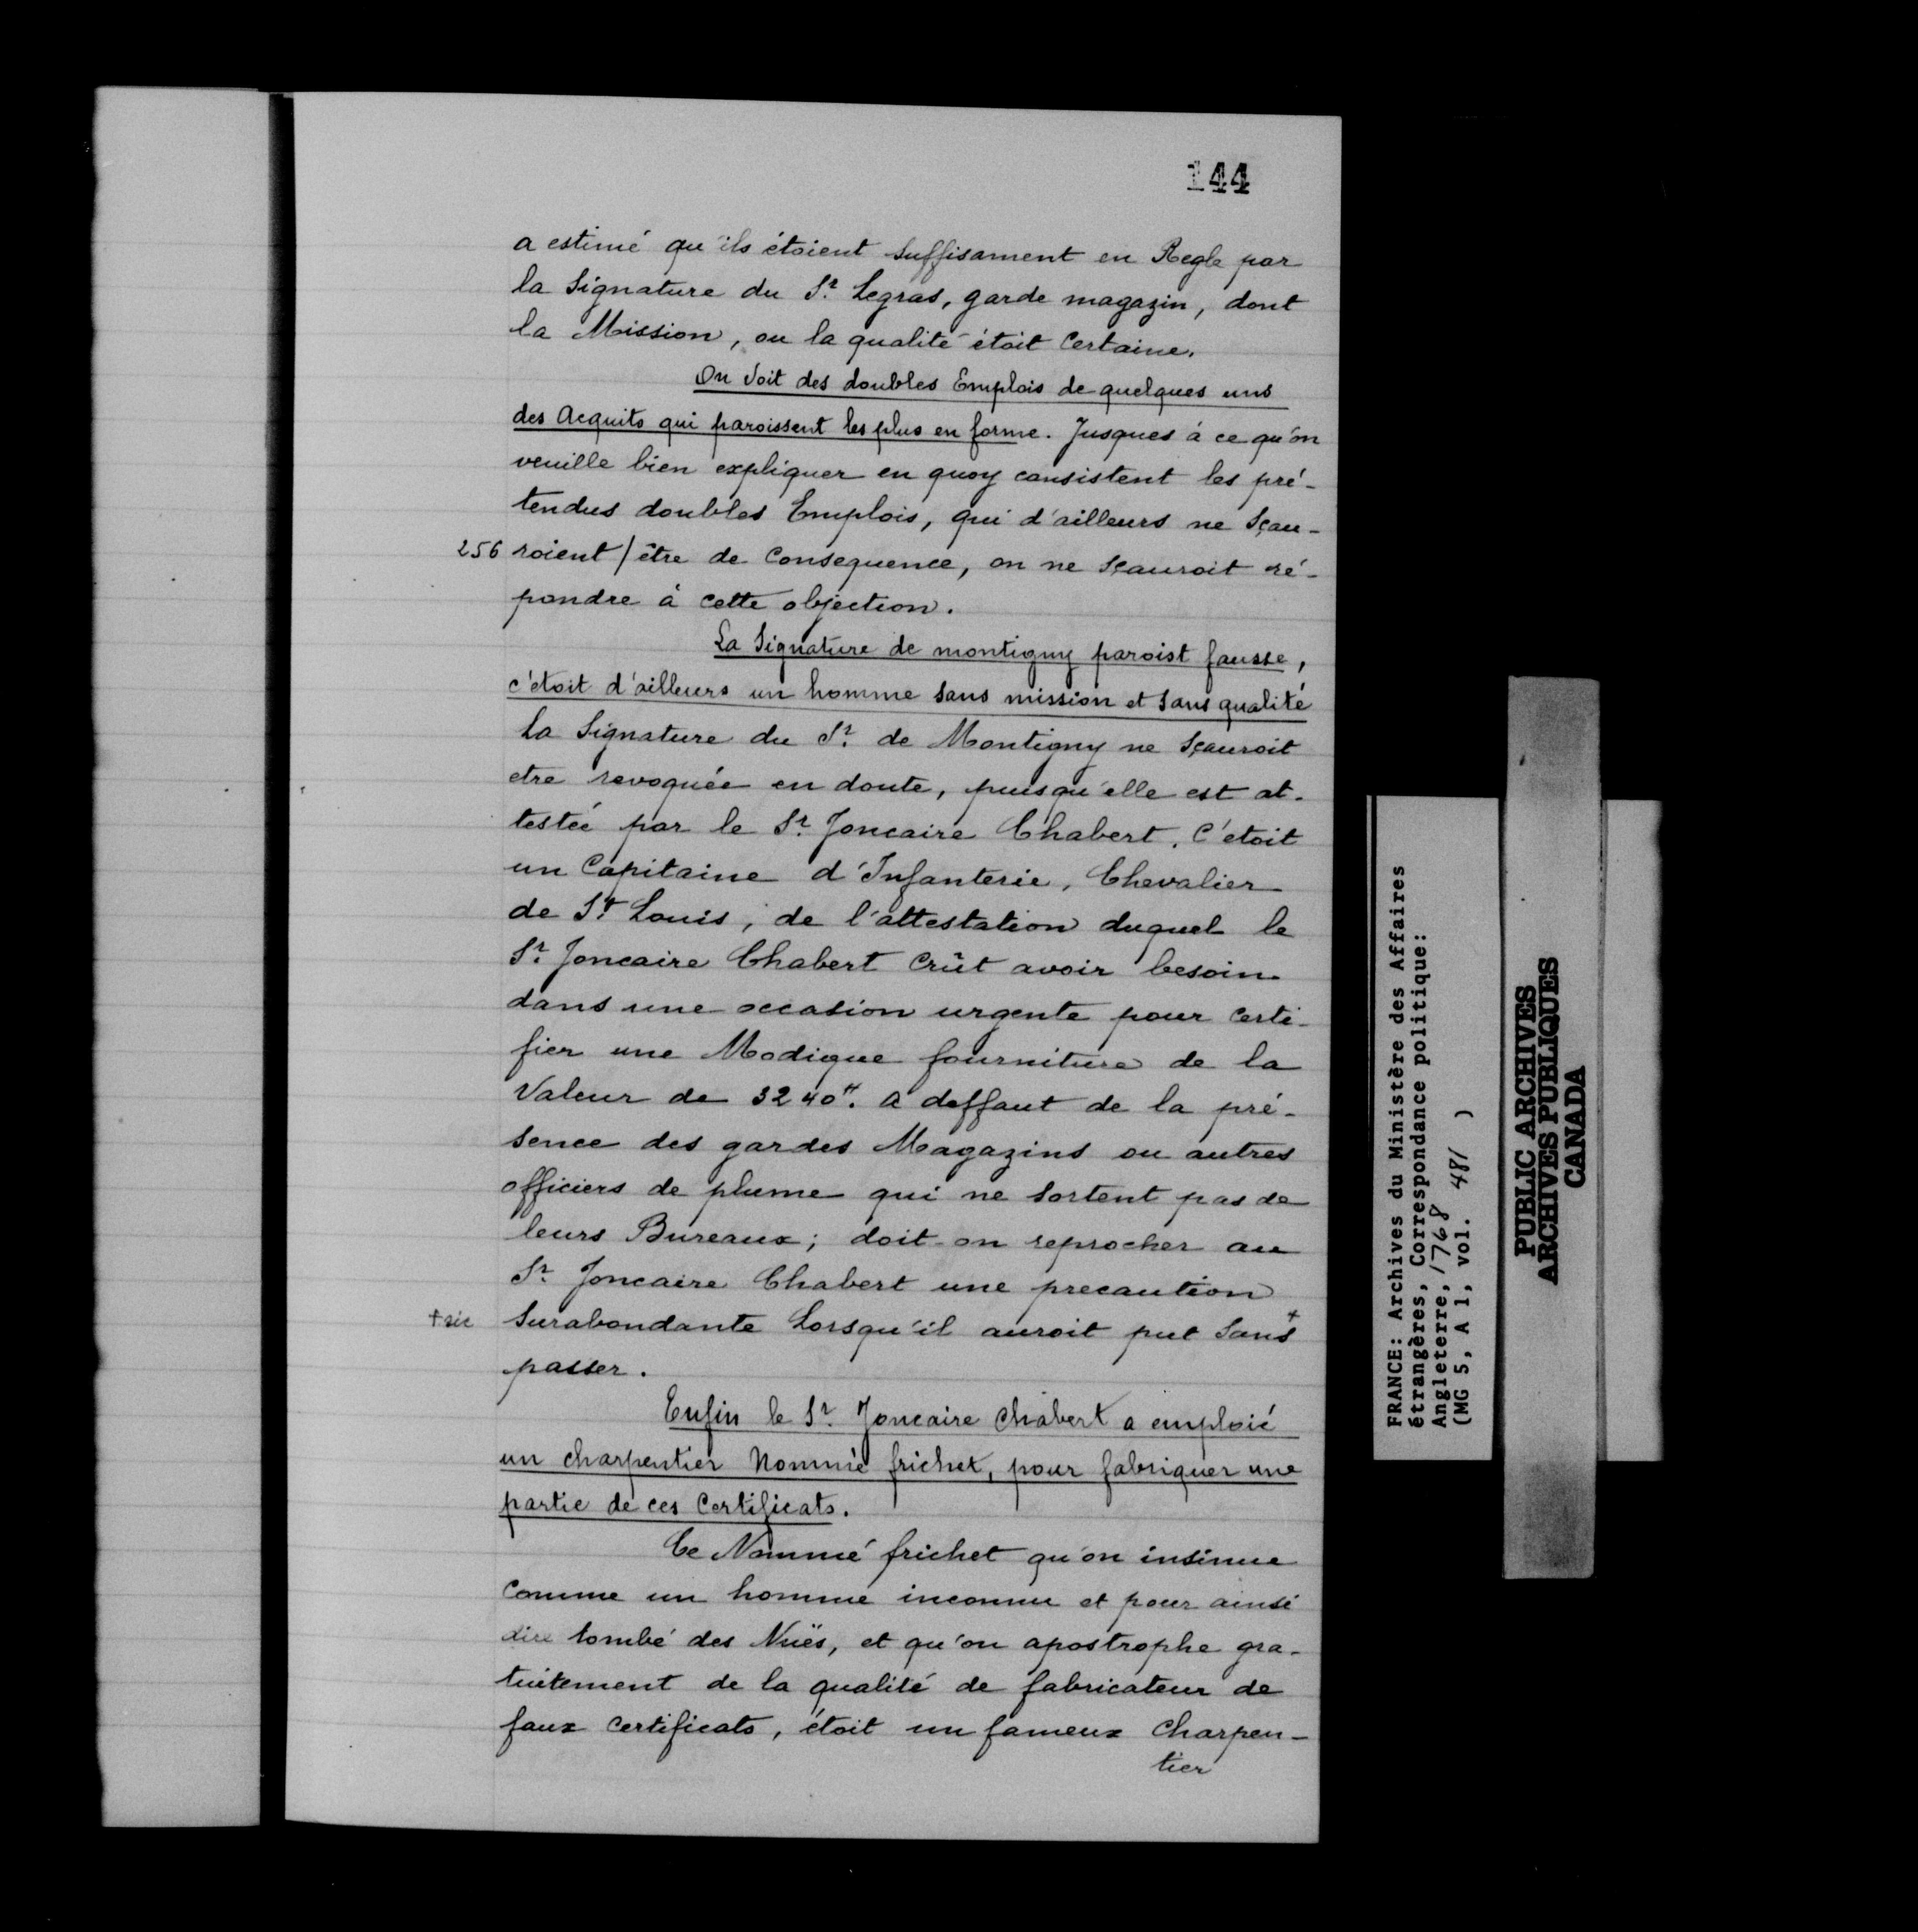 144
a estimé qu'ils étoient suffisament en Regle par
la Signature du Sr. Legras, garde magazin, dont
la Mission, ou la qualité étoit Certaine.
On Voit des doubles Emplois de quelques uns
des Acquits qui paroissent les plus en forme. Jusques à ce qu'on
veuille bien expliquer en quoy consistent les pré-
tendus doubles Emplois, qui d'ailleurs ne Sçau-
256 roient / être de Consequence, on ne Sçauroit ré-
pondre à cette objection.
La Signature de montigny paroist fausse,
c'étoit d'ailleurs un homme sans mission et sans qualité
La Signature du Sr. de Montigny ne Sçauroit
etre revoquée en doute, puisqu'elle est at-
testée par le Sr. Joncaire Chabert. C'étoit
un Capitaine d'Infanterie, Chevalier
de St. Louis, de l'attestation duquel le
Sr. Joncaire Chabert Crût avoir besoin
dans une occasion urgente pour Certi-
fier une Modique fourniture de la
Valeur de 3240ᴴ. a deffaut de la pré-
sence des gardes Magazins ou autres
officiers de plume qui ne sortent pas de
leurs Bureaux; doit-on reprocher au
Sr. Joncaire Chabert une precaution
+ sic Surabondante Lorsqu'il auroit put Sans +
passer.
Enfin le Sr. Joncaire Chabert a emploié
un charpentier Nommé frichet, pour fabriquer une
partie de ces Certificats.
Ce Nommé frichet qu'on insinue
Comme un homme inconnu et pour ainsi
dire tombé des Nuës, et qu'on apostrophe gra-
tuitement de la qualité de fabricateur de
faux Certificats, étoit un fameux Charpen-
tier
FRANCE: Archives du Ministère des Affaires
étrangères, Correspondance politique:
Angleterre, 1768
(MG 5, A 1, vol. 481 )
PUBLIC ARCHIVES
ARCHIVES PUBLIQUES
CANADA